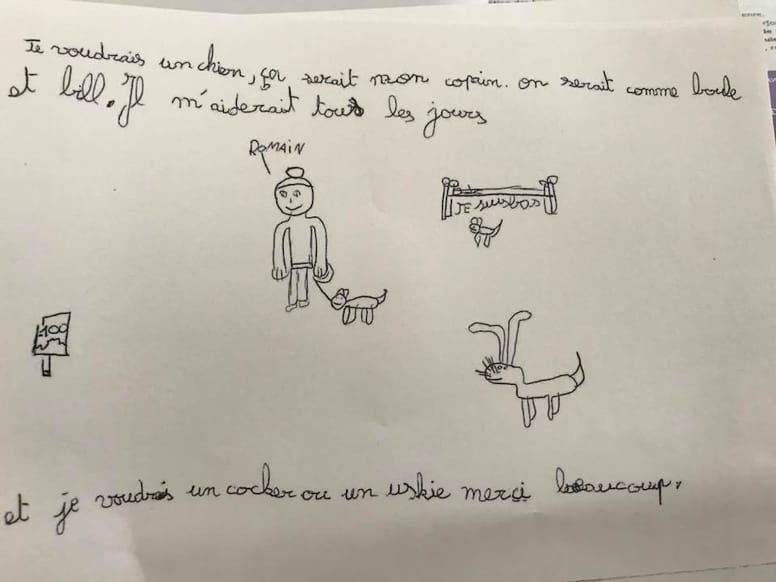 Je voudrais un chien, ça serait mon copain. on serait comme boule
et bill. Il m'aiderait tous les jours
ROMAIN
JE suis bas
100
et je voudrais un cocker ou un uskie merci beaucoup.